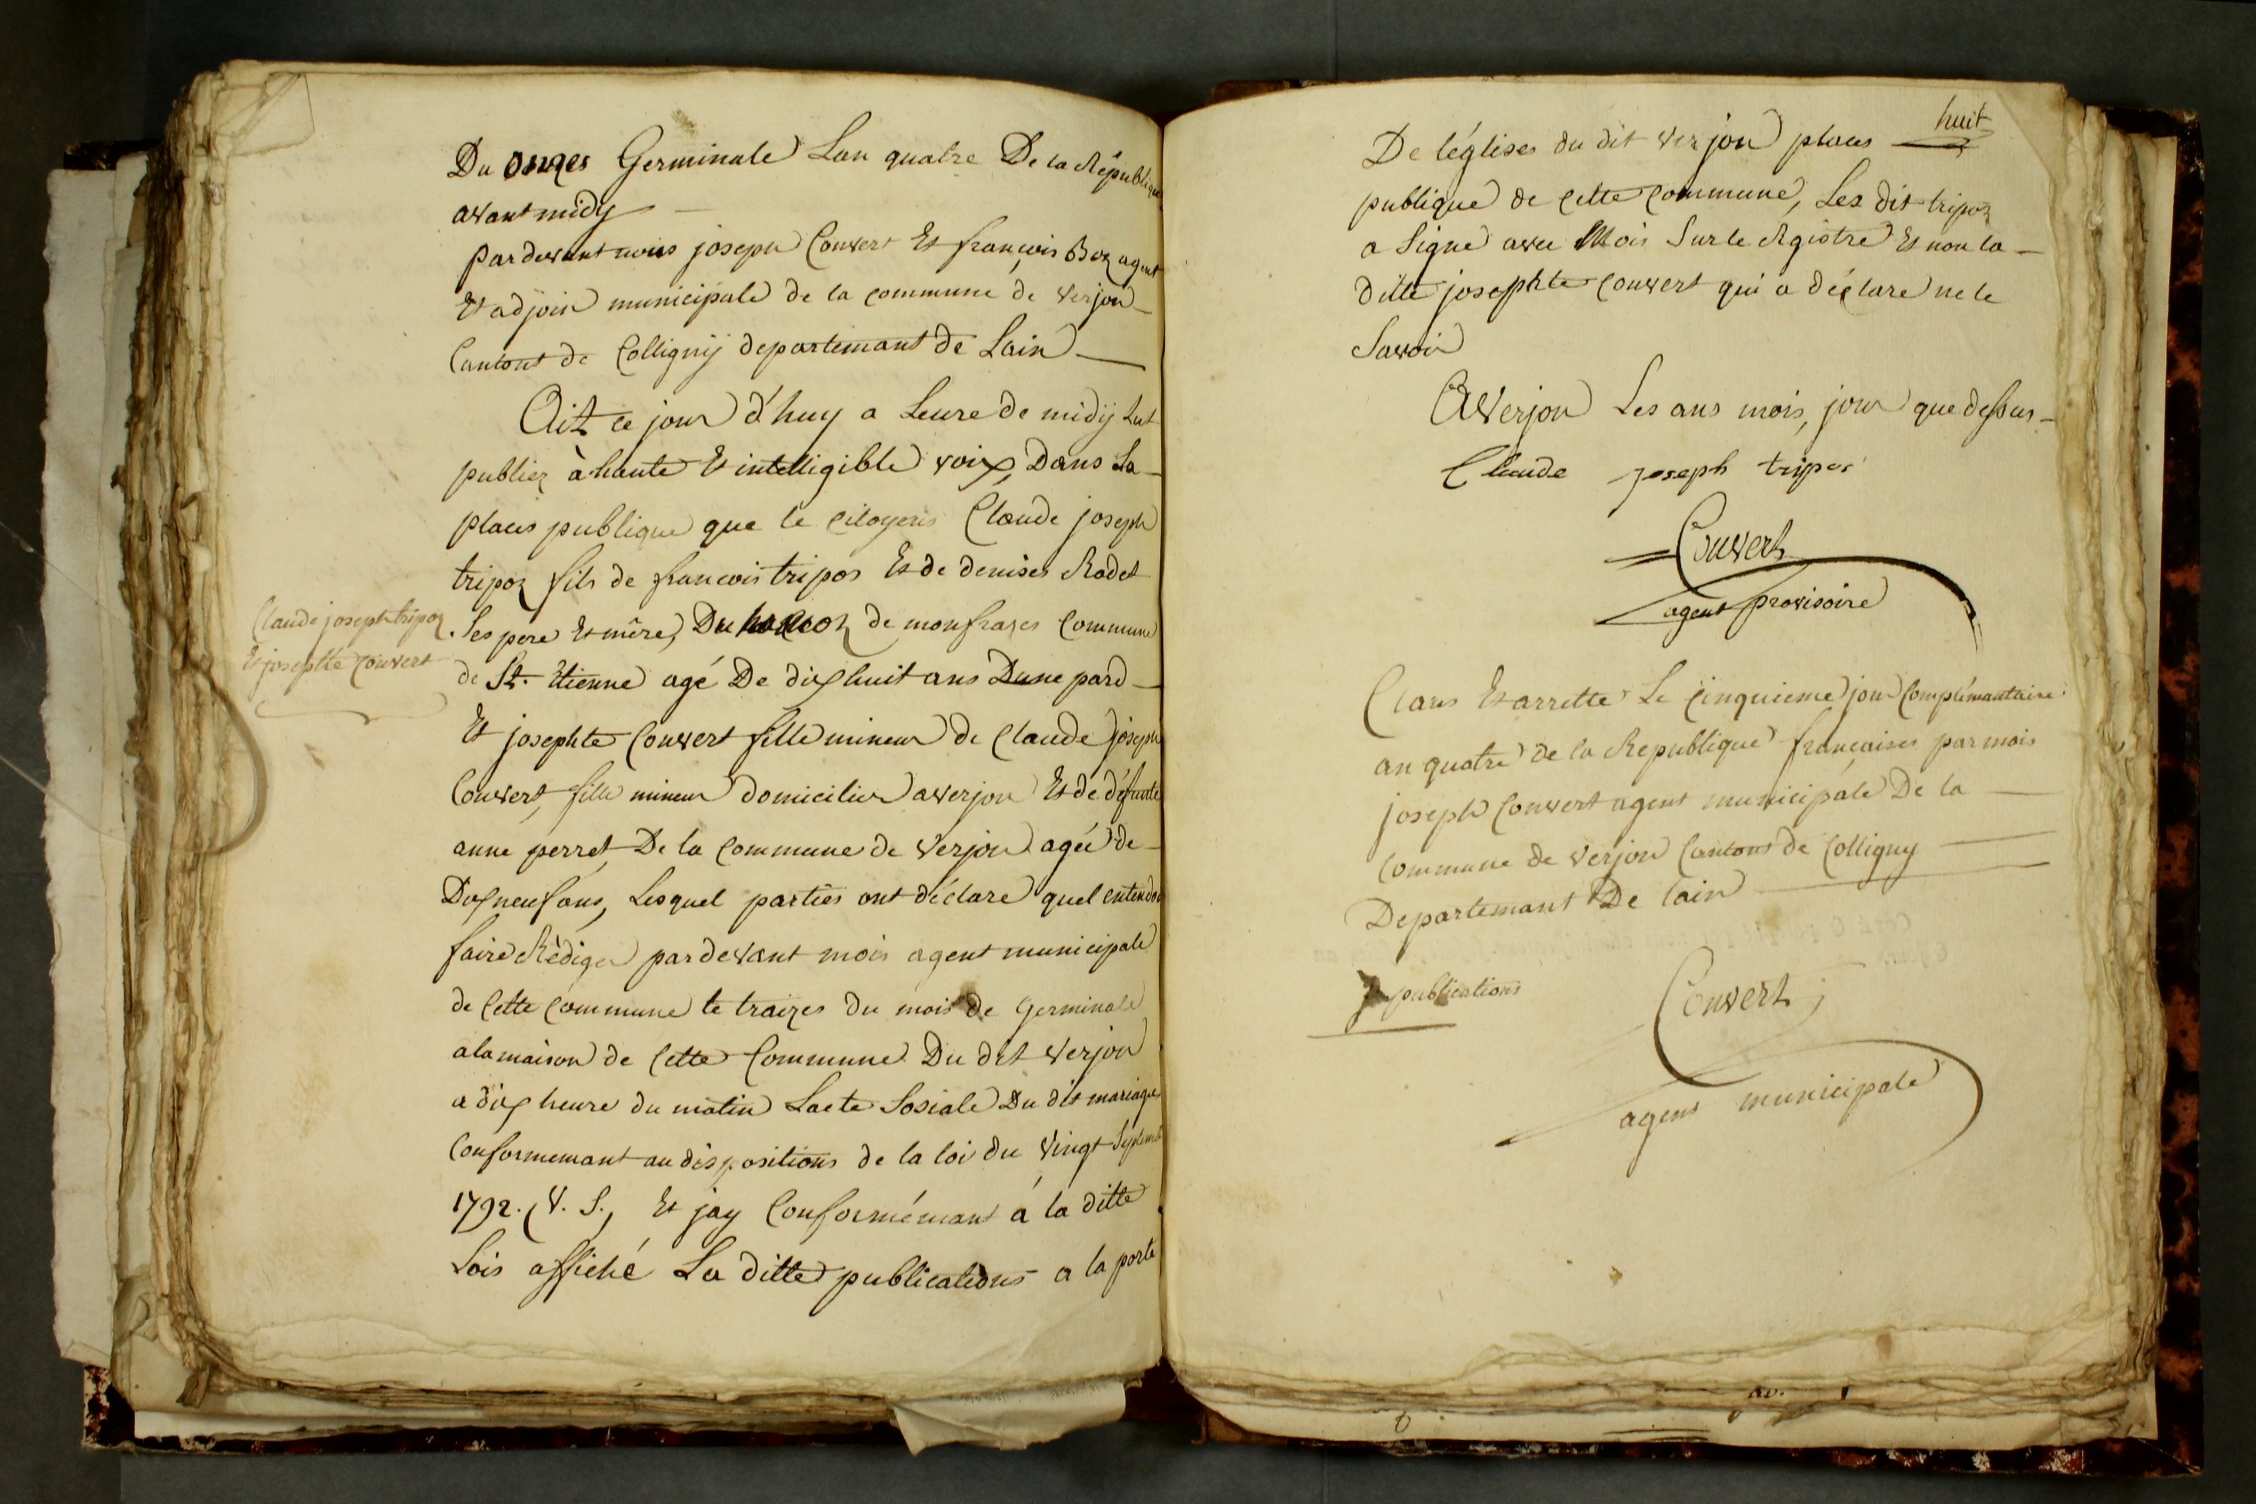 Du onzes Germinale Lan quatre De la République
avant midy
pardevant nous joseph Convert Et françois Boz agent
Et adjoin municipale de la commune de verjon
Cantont de Colligny departemant de Lain
Ait ce jour d'huy a Leure de midy Eut
publiez à haute Et intelligible voix, Dans La
places publique que le Citoyens Claude joseph
tripoz fils de francois tripos Et de denises Rodet
Claude joseph tripoz
Et josephte Convert
Ses pere Et mêre, Du de monfrazes Commune
de St. Etienne agé De dix huit ans Dune pard
Et josephte Convert fille mineur de Claude joseph
Convert, fille mineur domicilier a verjon Et de défunte
anne perret De la Commune de verjon agée de
Dix neuf ans, Lesquel parties ont déclare quel entendon
faire Rèdiger pardevant mois agent municipale
de Cette Commune le traizes du mois de Germinale
a la maison de Cette Commune Du dit verjon
a dix heure du matin Lacte Sosiale Du dit mariage
Conformemant au dispositions de la loi du vingt Septembre
1792. (V. S., Et jay Conformémant á la ditte
Lois affiché La ditte publications a la porte
huit
De léglises du dit verjon places
publique de Cette Commune, Les dit tripoz
a Signe avec Mois Sur le Rgistre Et non la
ditte josephte Convert qui a déclare ne le
Savoir
A Verjon Les ans mois, jour que dessus
Claude joseph tripos
Convert
agent provisoire
Claus Et arrette Le Cinquieme jour Complémantaire
an quatre de la Republique françaises par mois
joseph Convert agent municipale De la
Commune de verjon Cantons de Colligny
Departemant De lain
publications
Convert
agent municipale